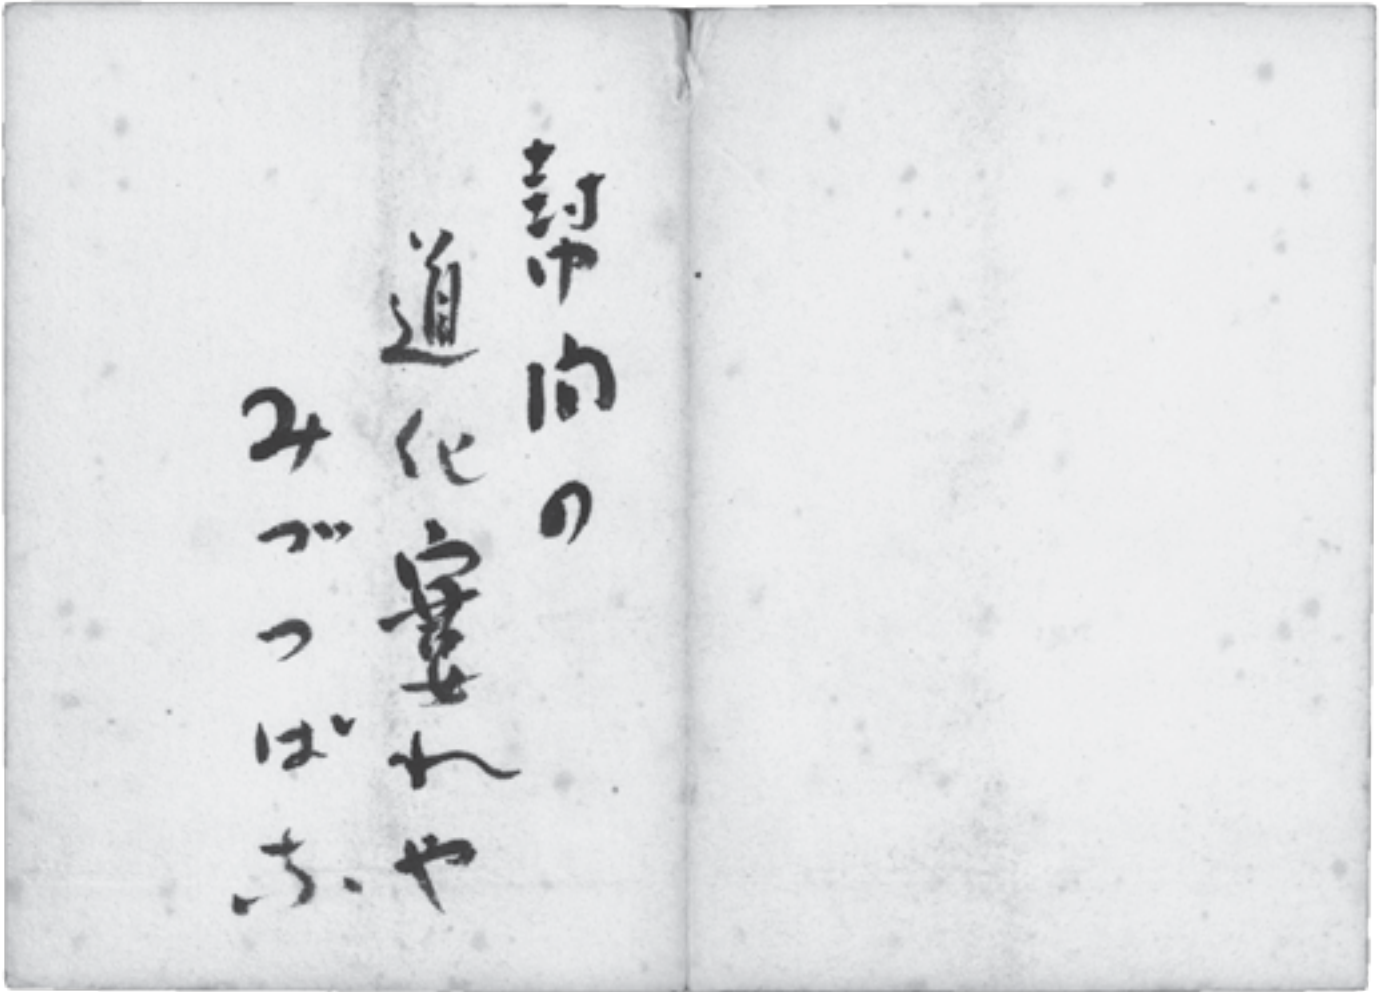 幇間の
道化窶れや
みづつばな